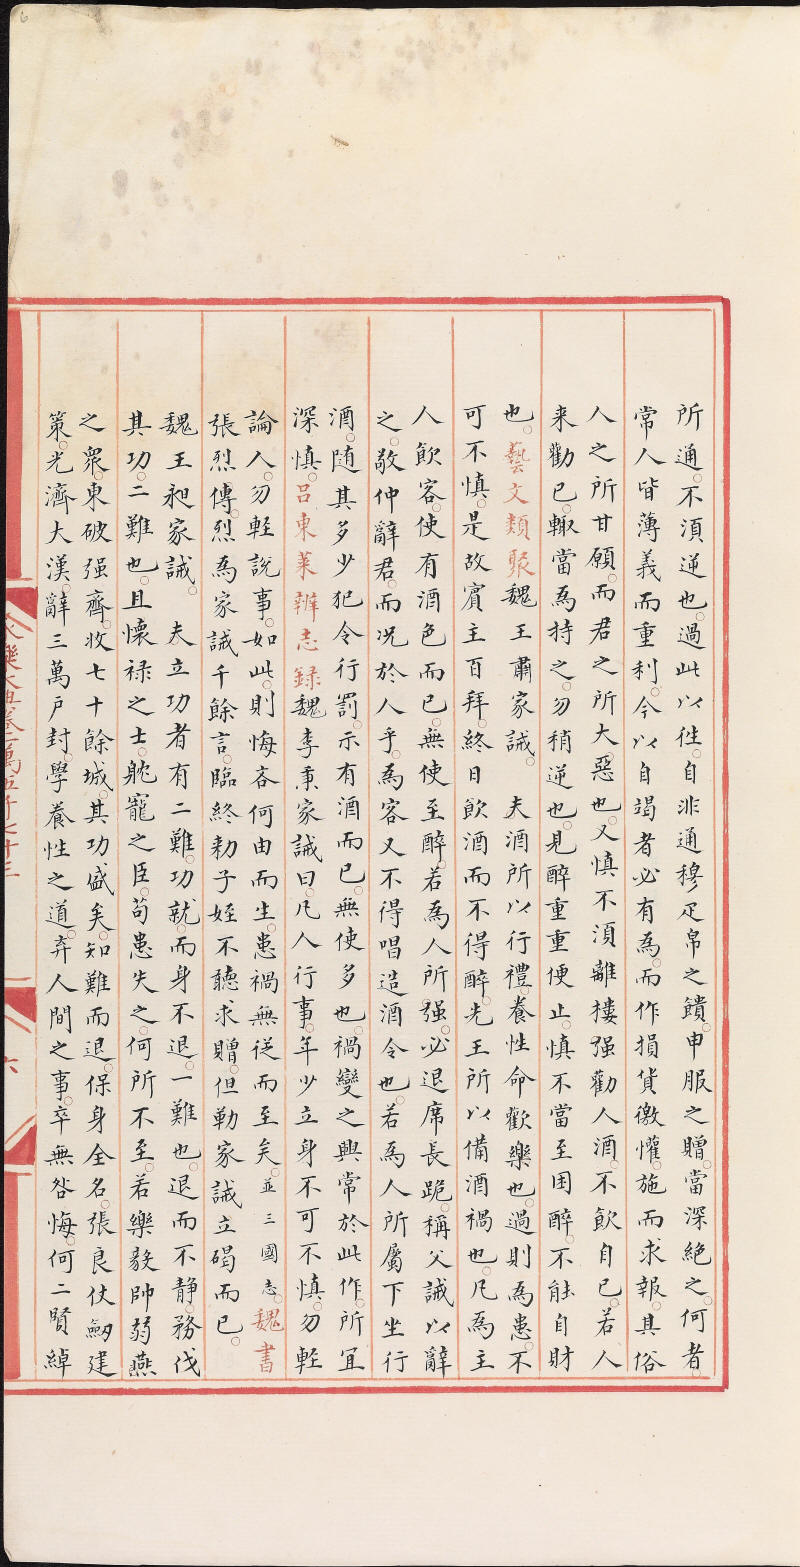 所通。不湏逆也。過此以徃。自非通穆疋帛之饋。申服之贈。當深絶之。何者。
常人皆薄義而重利。今以自竭者。必有為。而作損貨徼懽。施而求報。其俗
人之所甘願。而君之所大惡也。又慎不湏離樓强勸人酒。不飲自已。若人
来勸已。輙當為持之。勿稍逆也。見醉熏熏便止。慎不當至困醉。不能自財
也。藝文類聚魏王肅家誡。夫酒所以行禮。養性命歡樂也。過則為患。不
可不慎。是故賓主百拜。終日飲酒而不得醉。先王所以備酒禍也。凡為主
人飲客。使有酒色而已。無使至醉。若為人所强。必退席長跪。稱父誡以辭
之。敬仲辭君。而况於人乎。為客又不得唱造酒令也。若為人所屬下坐行
酒。随其多少犯令行罰。示有酒而已。無使多也。禍變之興。常於此作。所宜
深慎。吕東莱辨志録魏李秉家誡曰。凡人行事。年少立身不可不慎。勿輕
論人。勿輕說事。如此。則悔吝何由而生。患禍無従而至矣。並三國志。魏書
張烈傳。烈為家誡千餘言。臨終勑子姪不聽求贈。但勒家誡立碣而已。
魏王昶家誡。夫立功者有二難。功就而身不退。一難也。退而不静。務伐
其功。二難也。且懷禄之士。躭寵之臣。苟患失之。何所不至。若樂毅帥弱燕
之衆。東破强齊。收七十餘城。其功盛矣。知難而退。保身全名。張良仗劒建
策。光濟大漢。辭三萬戶封。學養性之道。弃人間之事。卒無咎悔。何二賢綽
六
6